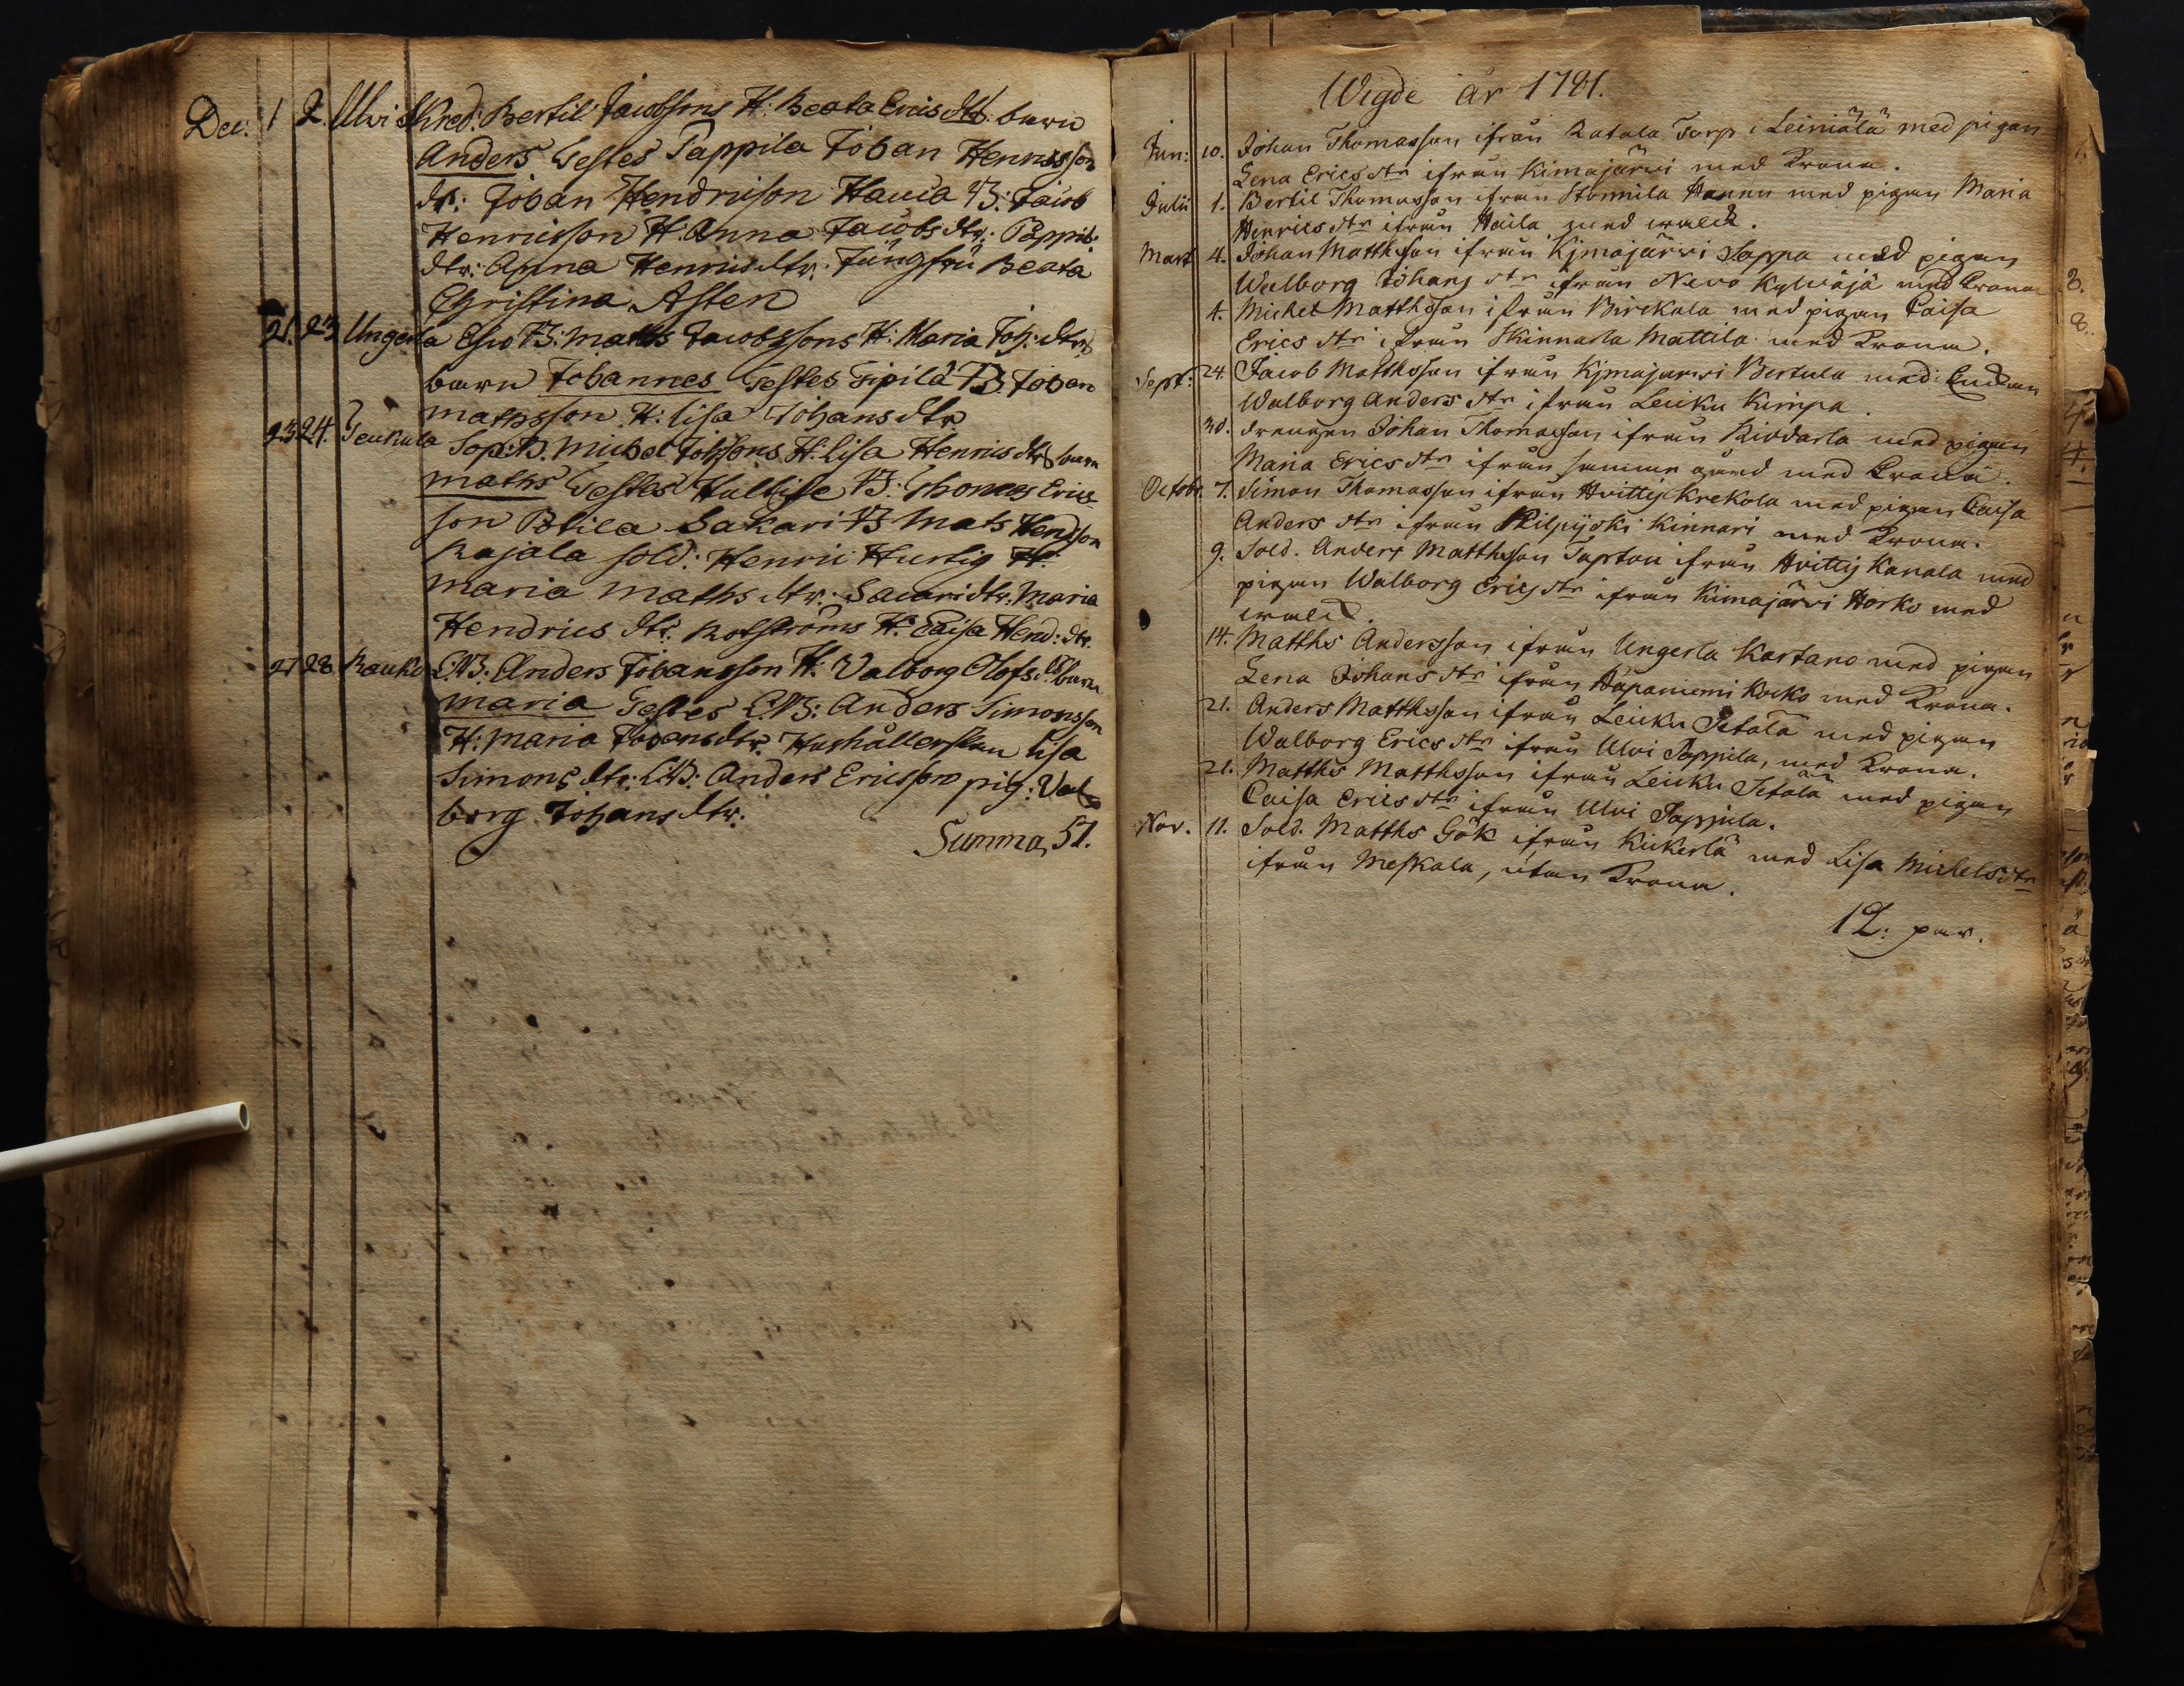 Dec: 1 2. Ulvi Skred: Bertil Jacobssons H: Beata Ericsdtr. barn
Anders Testes Pappila Johan Henricsson
dr: Johan Hendricson Hauia B: Jacob
Henricsson H: Anna Jacobsdtr: Pappil:
dtr: Anna Henricsdtr. Jungfru Beata
Christina Asten
21. 23 Ungerla B: Maths Jacobssons H: Maria Joh: dtrs
barn Johannes Testes Pipilä B. Johan
mathsson H: lisa Johansdtr
23 24. Teukula B. Michel Johssons H: lisa Henricsdtrs barn
maths Testes B: Thomas Eric
son Sakari B Mats Hendson
Rajala sold: Henric Hurtig H:
maria maths dtr: Sacaridtr: Maria
Hendrics dtr: Rotströms H: Caisa Hend: dtr.
27 28 Rauko Anders Johansson H: Valborg Olofs d: barn
maria Testes Anders Simonsson
H: Maria Johansdtr. Hushållerskan lisa
Simons dtr: Anders Ericsson pig: Val
borg Johans dtr:
Summa, 57.
Wigde år 1781.
Jun: 10. Johan Thomasson ifrån Ratala Torp i Leiniälä med pigan
Lena Ericsdtr ifrån Kimajärvi med Krona.
Julii 1. Bertil Thomasson ifrån Stommila Hannu med pigan Maria
Henricsdtr ifrån Heila med
Mart 4. Johan Matthsson ifrån Kjmajärvi Sappa med pigan
Walborg Johans dtr ifrån Nevo Kylväjä med Krona
4. Michel Matthsson ifrån Birckala med pigan Caisa
Erics dtr ifrån Skinnarla Mattila med Krona.
Sept: 24. Jacob Matthsson ifrån Kjmajärvi Bertula med: Enkan
Walborg Anders dtr ifrån Leuku Kimpa.
30. drengen Johan Thomasson ifrån Riodarla med pigan
Maria Ericsdtr ifrån samma gård med Krona.
Octobr. 7. Simon Thomasson ifrån Hvittis Krekola med pigan Caisa
Anders dtr ifrån Kilpijoki Kinnari med Krona.
9. Sold. Anders Matthsson Tapton ifrån Hvittis Karala med
pigan Walborg Erics dtr ifrån Kimajärvi Horko med

14. Matths Andersson ifrån Ungerla Kartano med pigan
Lena Johans dtr ifrån Hapaniemi Kocko med Krona.
21. Anders Matthsson ifrån Leuku Setälä med pigan
Walborg Ericsdtr ifrån Ulvi Pappila, med Krona.
21. Matths Matthsson ifrån Leuku Setälä med pigan
Caisa Ericsdtr ifrån Ulvi Pappila.
Nov. 11. Sold. Matths Gök ifrån Kickerlä med Lisa Michelsdtr
ifrån Meskala, utan Krona.
12: par.